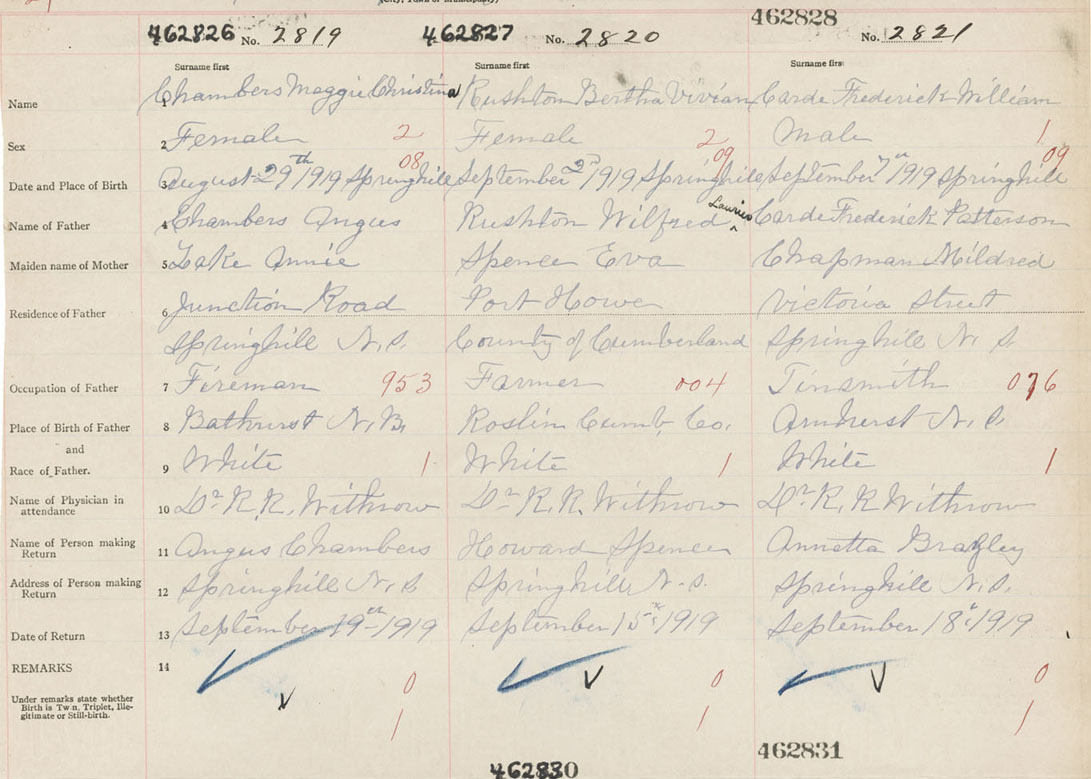 (City, Town or Municipality)
462826 No. 2819 462827 No. 2820 462828 No. 2821
Surname first Surname first Surname first
Name 1 Chambers Maggie Christina Rushton Bertha Vivian Carde Frederick William
Sex 2 Female 2 Female 2 Male 1
08 09 09
Date and Place of Birth 3 August 29th 1919 Springhill September 2nd 1919 Springhill September 7th 1919 Springhill
Name of Father 4 Chambers Angus Rushton Wilfred Laurie Carde Frederick Patterson
Maiden name of Mother 5 Lake Annie Spence Eva Chapman Mildred
Residence of Father 6 Junction Road Port Howe Victoria Street
Springhill N.S. County of Cumberland Springhill N.S.
Occupation of Father 7 Fireman 953 Farmer 004 Tinsmith 076
Place of Birth of Father 8 Bathurst N.B. Roslin Cumb. Co. Amherst N.S.
and
Race of Father. 9 White 1 White 1 White 1
Name of Physician in attendance 10 Dr R.R. Withrow Dr R.R. Withrow Dr R.R Withrow
Name of Person making Return 11 Angus Chambers Howard Spence Annetta
Address of Person making Return 12 Springhill N.S Springhill N.S. Springhill N.S.
Date of Return 13 September 19th 1919 September 15th 1919 September 18th 1919
REMARKS 14 0 0 0
Under remarks state whether Birth is Twin, Triplet, Illegitimate or Still-birth. 1 1 1
462830 462831